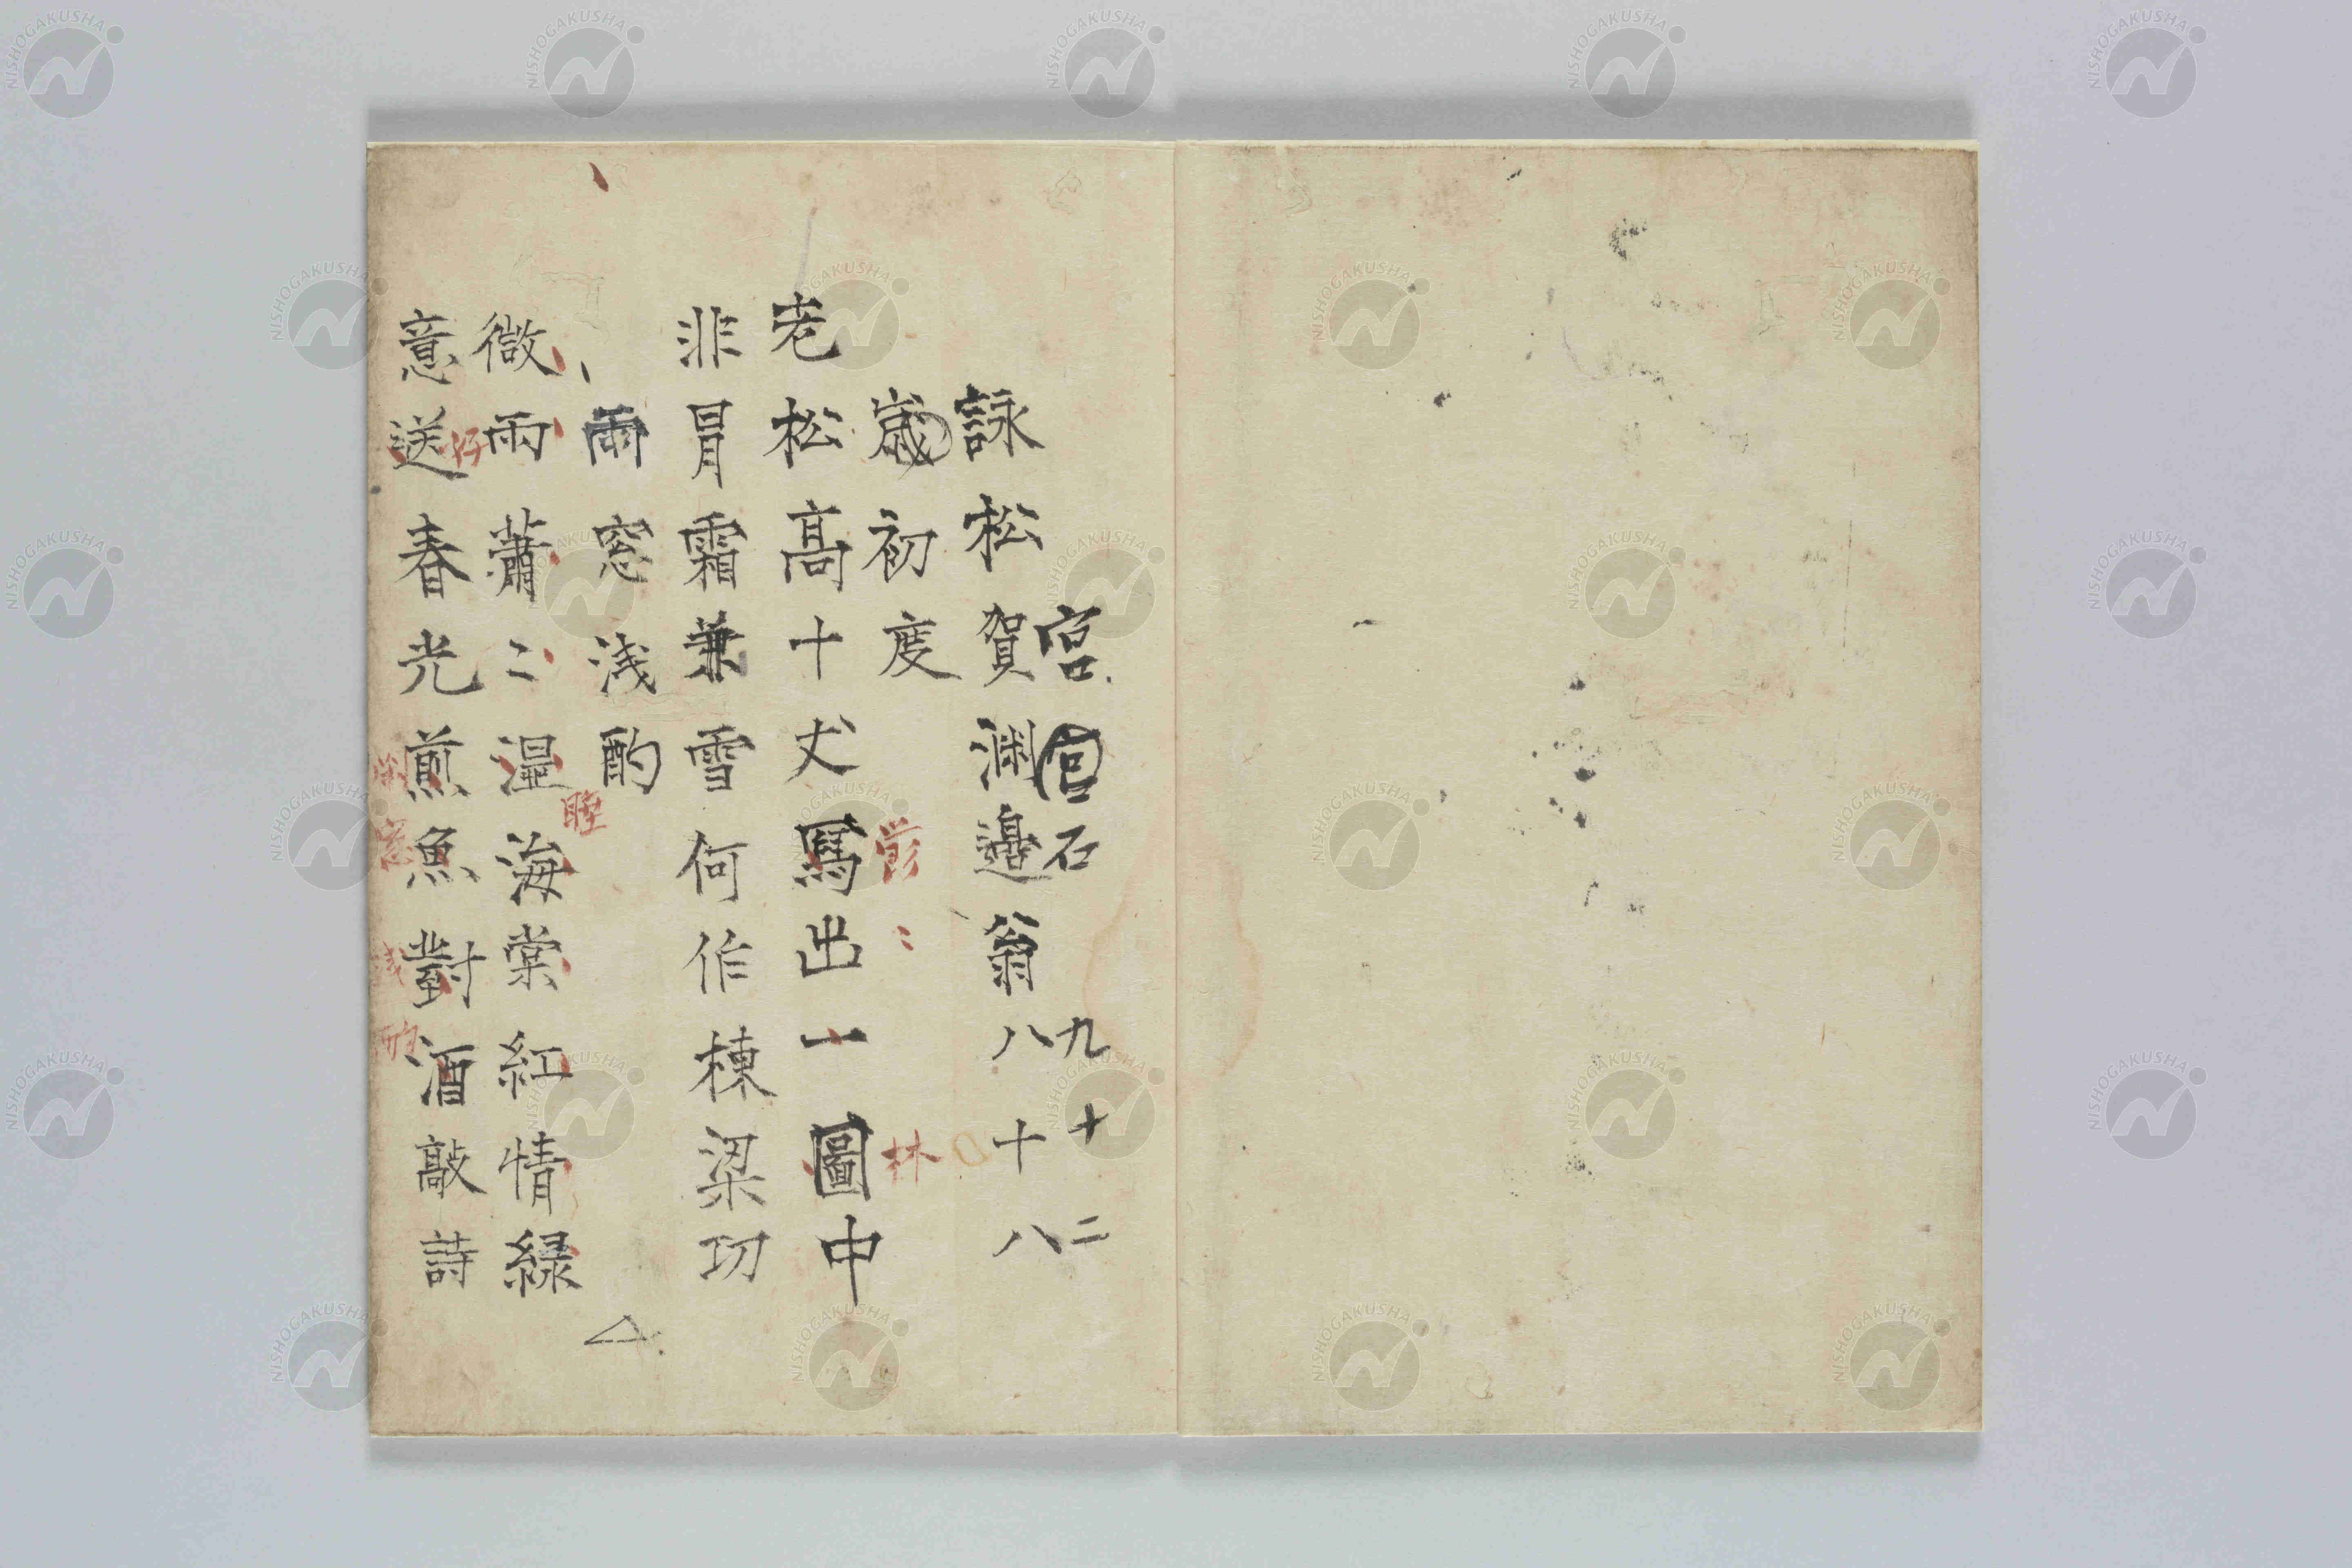 宮宮石九十二
詠松賀渊邉翁八十八
歳初度
老松高十丈寫出一圖中
林
非冐霜兼雪何作棟梁功
雨窓浅酌
微雨蕭〻湿海棠紅情緑
睡
意送春光煎魚對酒敲詩
仔
NISHOGAKUSHA